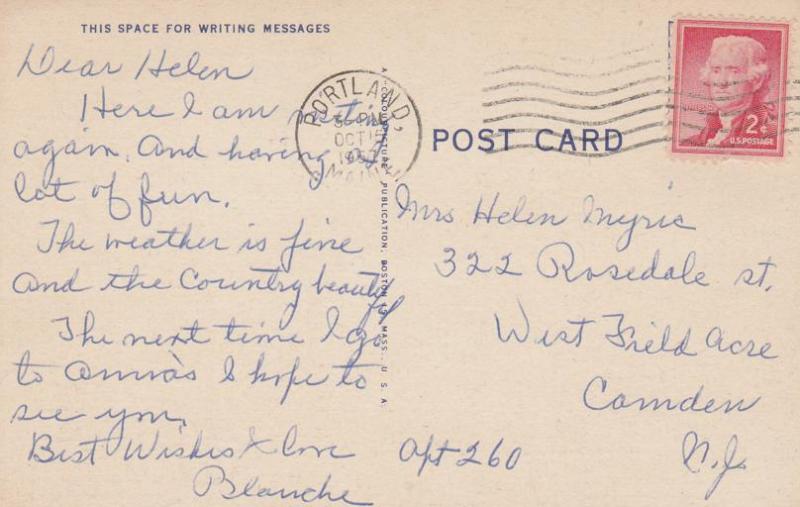 THIS SPACE FOR WRITING MESSAGES
Dear Helen
Here I am
again. And having a
lot of fun.
The weather is fine
and the Country beauty
The next time I go
to Anna's I hope to
see you.
Best Wishes & Love
Blanche
PORTLAND,
PM
OCT 15
MAINE
A "COLOURPICTURE" PUBLICATION, BOSTON 15, MASS., U. S. A.
POST CARD
2¢
U.S. POSTAGE
Mrs Helen Myric
322 Rosedale st.
West Field Acre
Camden
Apt 260 N.J.